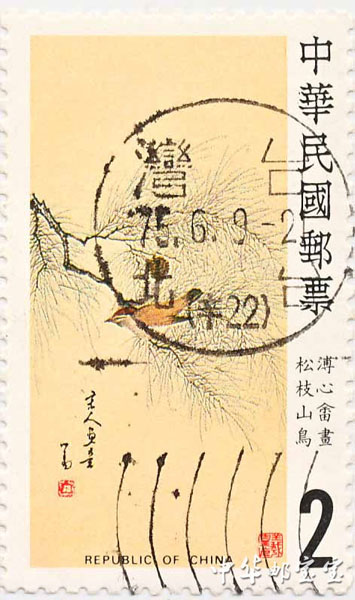 中華民國郵票
溥心畬畫
松枝山鳥
台灣
75.6.9-2
台北
(甲22)
REPUBLIC OF CHINA
2
中华邮宝堂